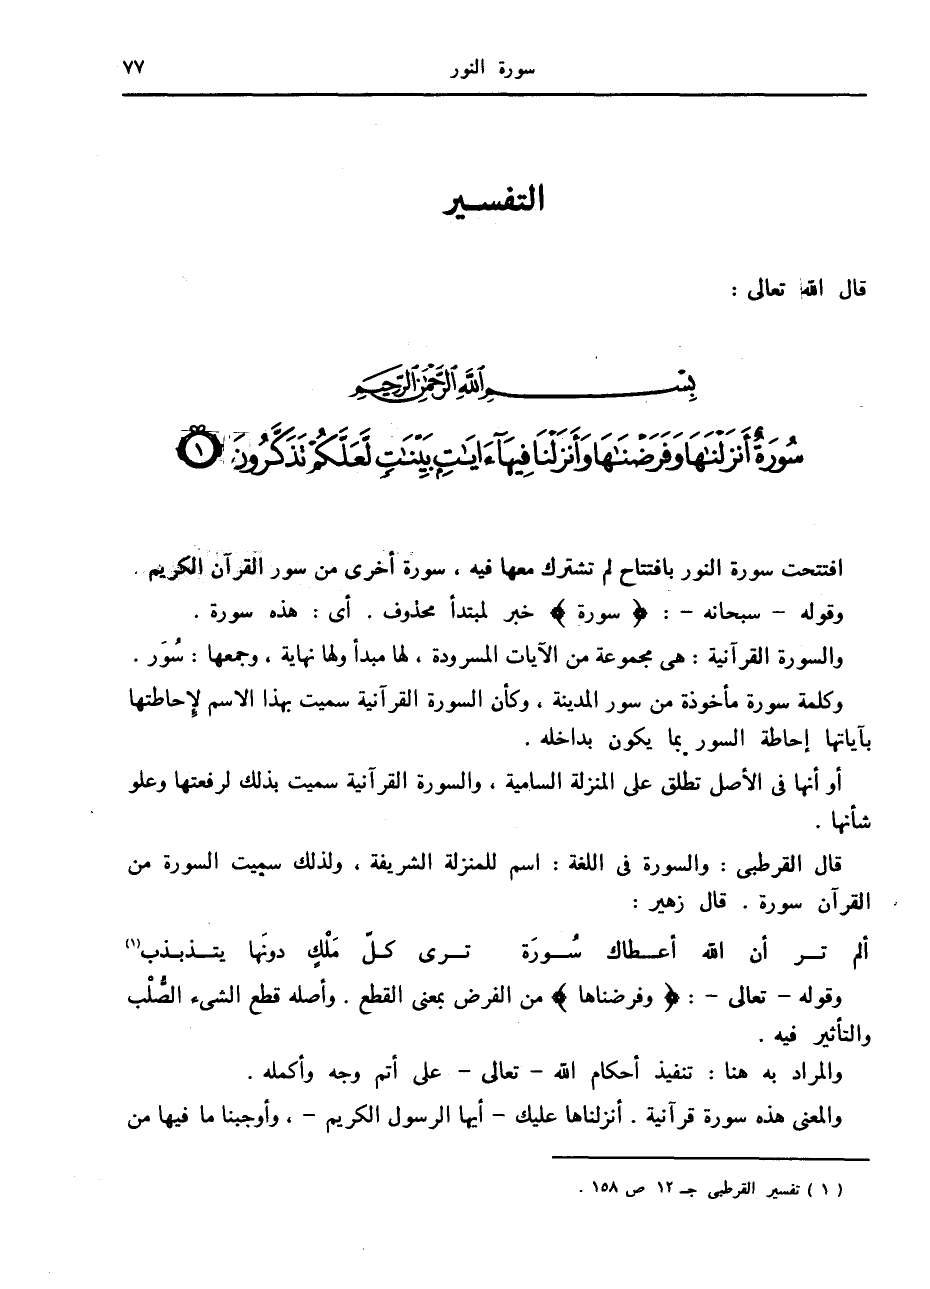 سورة النور ٧٧
التفسير
قال الله تعالى :
بِسْمِ اللَّهِ الرَّحْمَٰنِ الرَّحِيمِ
سُورَةٌ أَنزَلْنَٰهَا وَفَرَضْنَٰهَا وَأَنزَلْنَا فِيهَآ ءَايَٰتٍۭ بَيِّنَٰتٍ لَّعَلَّكُمْ تَذَكَّرُونَ ١
افتتحت سورة النور بافتتاح لم تشترك معها فيه ، سورة أخرى من سور القرآن الكريم .
وقوله – سبحانه – : ﴿ سورة ﴾ خبر لمبتدأ محذوف . أى : هذه سورة .
والسورة القرآنية : هى مجموعة من الآيات المسرودة ، لها مبدأ ولها نهاية ، وجمعها : سُوَر .
وكلمة سورة مأخوذة من سور المدينة ، وكأن السورة القرآنية سميت بهذا الاسم لإحاطتها
بآياتها إحاطة السور بما يكون بداخله .
أو أنها فى الأصل تطلق على المنزلة السامية ، والسورة القرآنية سميت بذلك لرفعتها وعلو
شأنها .
قال القرطبى : والسورة فى اللغة : اسم للمنزلة الشريفة ، ولذلك سميت السورة من
القرآن سورة . قال زهير :
ألم تر أن الله أعطاك سُورَة ترى كلّ مَلْكٍ دونَها يتذبذب(١)
وقوله – تعالى – : ﴿ وفرضناها ﴾ من الفرض بمعنى القطع . وأصله قطع الشىء الصُّلْب
والتأثير فيه .
والمراد به هنا : تنفيذ أحكام الله – تعالى – على أتم وجه وأكمله .
والمعنى هذه سورة قرآنية . أنزلناها عليك – أيها الرسول الكريم – ، وأوجبنا ما فيها من
( ١ ) تفسير القرطبى جـ ١٢ ص ١٥٨ .